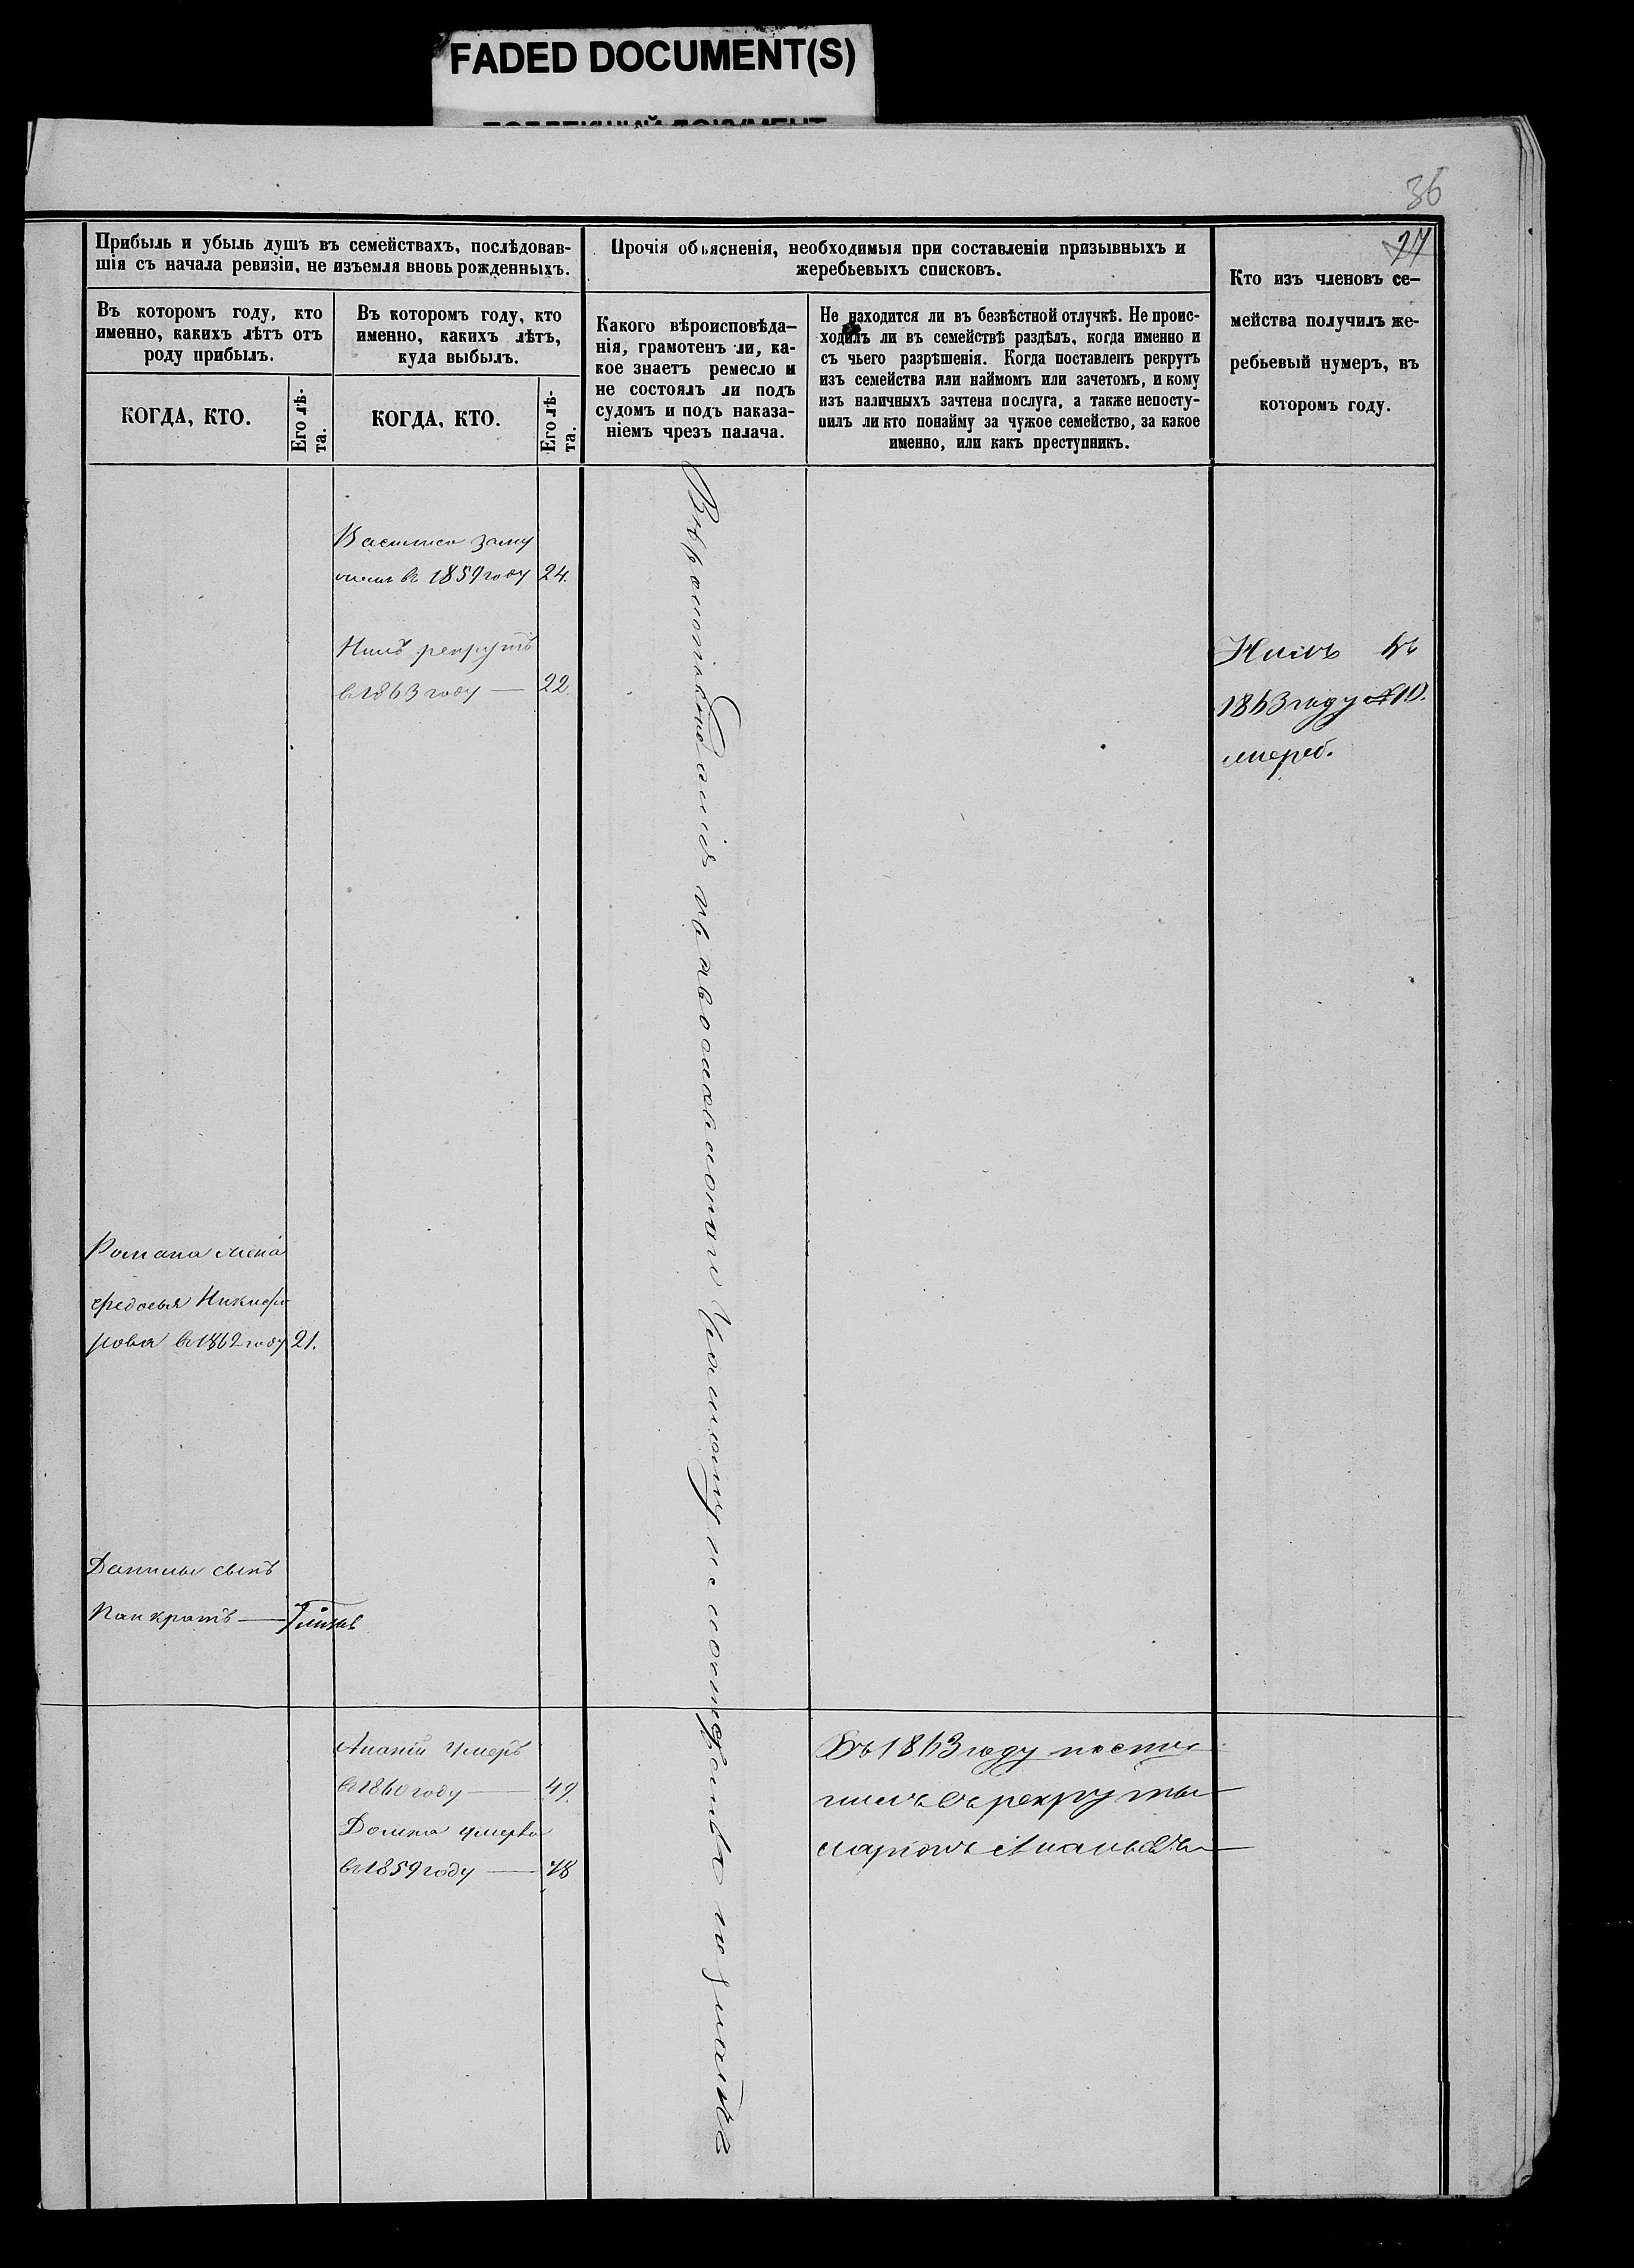 FADED DOCUMENT(S)
36
27
Прибыль и убыль душъ въ семействахъ, послѣдовав-
шія съ начала ревизіи, не изъемля вновь рожденныхъ.
Въ которомъ году, кто
именно, какихъ лѣтъ отъ
роду прибылъ.
КОГДА, КТО.
Его лѣ-
та.
Въ которомъ году, кто
именно, какихъ лѣтъ,
куда выбылъ.
КОГДА, КТО.
Его лѣ-
та.
Прочія объясненія, необходимыя при составленіи призывныхъ и
жеребьевыхъ списковъ.
Какого вѣроисповѣда-
нія, грамотенъ ли, ка-
кое знаетъ ремесло и
не состоялъ ли подъ
судомъ и подъ наказа-
ніемъ чрезъ палача.
Не находится ли въ безвѣстной отлучкѣ. Не проис-
ходилъ ли въ семействѣ раздѣлъ, когда именно и
съ чьего разрѣшенія. Когда поставленъ рекрутъ
изъ семейства или наймомъ или зачетомъ, и кому
изъ наличныхъ зачтена послуга, а также непосту-
пилъ ли кто понайму за чужое семейство, за какое
именно, или какъ преступникъ.
Кто изъ членовъ се-
мейства получилъ же-
ребьевый нумеръ, въ
которомъ году.
Василиса заму
въ 1859 году 24.
Нилъ рекрутъ
въ 1863 году — 22.
Нилъ въ
1863 году №10.
жереб.
Романа жена
Федосья Никифо
рова въ 1862 году 21.
Данилы сынъ
Панкратъ —
Ананій умеръ
въ 1860 году — 49.
Домна умерла
въ 1859 году — 48
Въ 1863 году посту
пилъ въ рекруты
Ананьевъ —
Вѣроисповѣданія православнаго